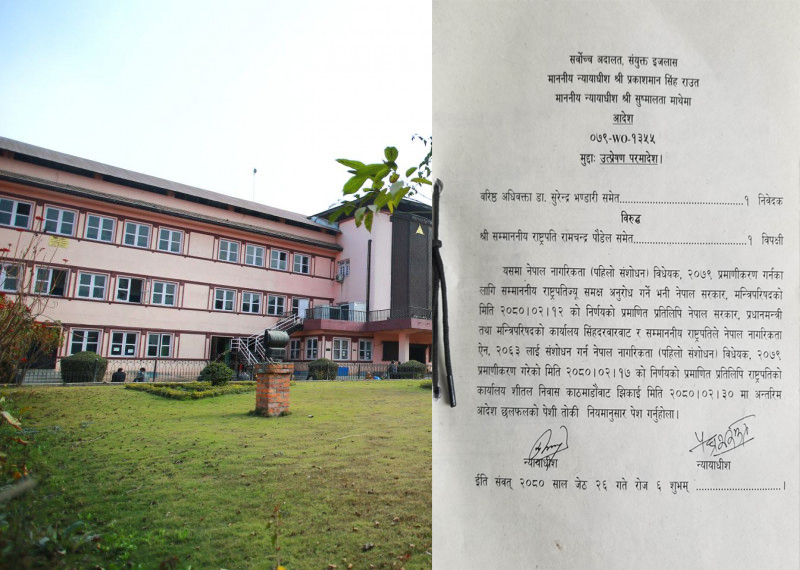 सर्वोच्च अदालत, संयुक्त इजलास
माननीय न्यायाधीश श्री प्रकाशमान सिंह राउत
माननीय न्यायाधीश श्री सुष्मालता माथेमा
आदेश
०७९-WO-१३५५
मुद्दाः उत्प्रेषण परमादेश।
वरिष्ठ अधिवक्ता डा. सुरेन्द्र भण्डारी समेत..............................१ निवेदक
विरुद्ध
श्री सम्माननीय राष्ट्रपति रामचन्द्र पौडेल समेत..............................१ विपक्षी
यसमा नेपाल नागरिकता (पहिलो संशोधन) विधेयक, २०७९ प्रमाणीकरण गर्नका
लागि सम्माननीय राष्ट्रपतिज्यू समक्ष अनुरोध गर्ने भनी नेपाल सरकार, मन्त्रिपरिषदको
मिति २०८०।०२।१२ को निर्णयको प्रमाणित प्रतिलिपि नेपाल सरकार, प्रधानमन्त्री
तथा मन्त्रिपरिषदको कार्यालय सिंहदरवारबाट र सम्माननीय राष्ट्रपतिले नेपाल नागरिकता
ऐन, २०६३ लाई संशोधन गर्न नेपाल नागरिकता (पहिलो संशोधन) विधेयक, २०७९
प्रमाणीकरण गरेको मिति २०८०।०२।१७ को निर्णयको प्रमाणित प्रतिलिपि राष्ट्रपतिको
कार्यालय शीतल निवास काठमाडौबाट झिकाई मिति २०८०।०२।३० मा अन्तरिम
आदेश छलफलको पेशी तोकी नियमानुसार पेश गर्नुहोला।
न्यायाधीश न्यायाधीश
ईति संवत् २०८० साल जेठ २६ गते रोज ६ शुभम् ......................।